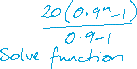 20(0.9^n-1)
0.9-1
Solve function